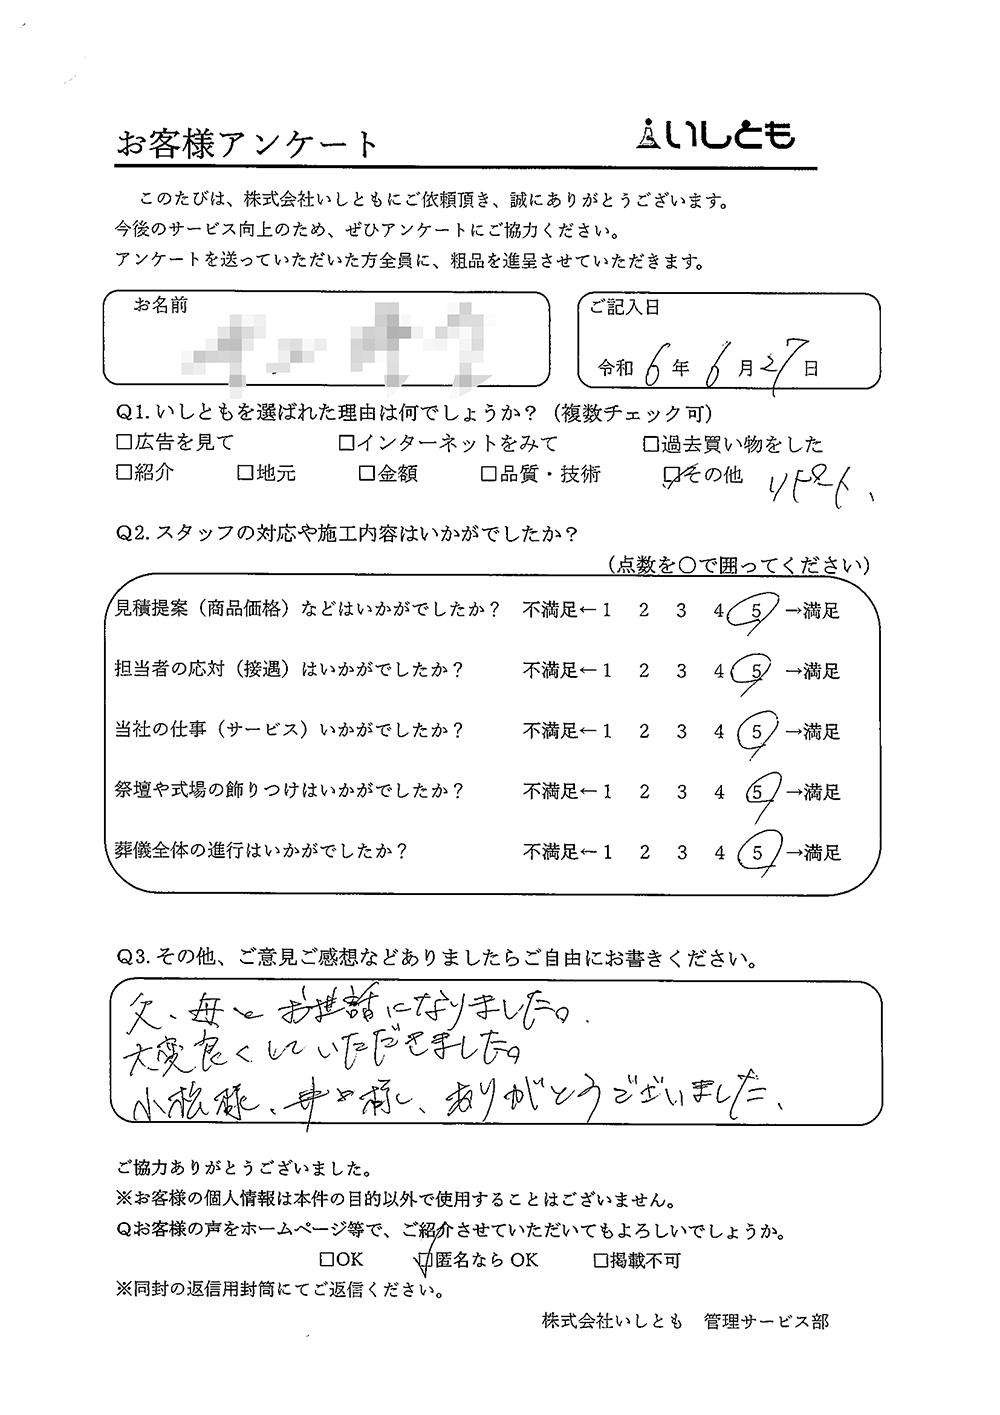 お客様アンケート
いしとも
このたびは、株式会社いしともにご依頼頂き、誠にありがとうございます。
今後のサービス向上のため、ぜひアンケートにご協力ください。
アンケートを送っていただいた方全員に、粗品を進呈させていただきます。
お名前
ご記入日
令和 6 年 6 月 27 日
Q1. いしともを選ばれた理由は何でしょうか？（複数チェック可）
□広告を見て □インターネットをみて □過去買い物をした
□紹介 □地元 □金額 □品質・技術 ☑その他 リピート、
Q2. スタッフの対応や施工内容はいかがでしたか？
（点数を〇で囲ってください）
見積提案（商品価格）などはいかがでしたか？ 不満足←1 2 3 4 5 →満足
担当者の応対（接遇）はいかがでしたか？ 不満足←1 2 3 4 5 →満足
当社の仕事（サービス）いかがでしたか？ 不満足←1 2 3 4 5 →満足
祭壇や式場の飾りつけはいかがでしたか？ 不満足←1 2 3 4 5 →満足
葬儀全体の進行はいかがでしたか？ 不満足←1 2 3 4 5 →満足
Q3. その他、ご意見ご感想などありましたらご自由にお書きください。
父、母とお世話になりました。
大変良くしていただきました。
小松様、様、ありがとうございました、
ご協力ありがとうございました。
※お客様の個人情報は本件の目的以外で使用することはございません。
Qお客様の声をホームページ等で、ご紹介させていただいてもよろしいでしょうか。
□OK ☑匿名なら OK □掲載不可
※同封の返信用封筒にてご返信ください。
株式会社いしとも 管理サービス部